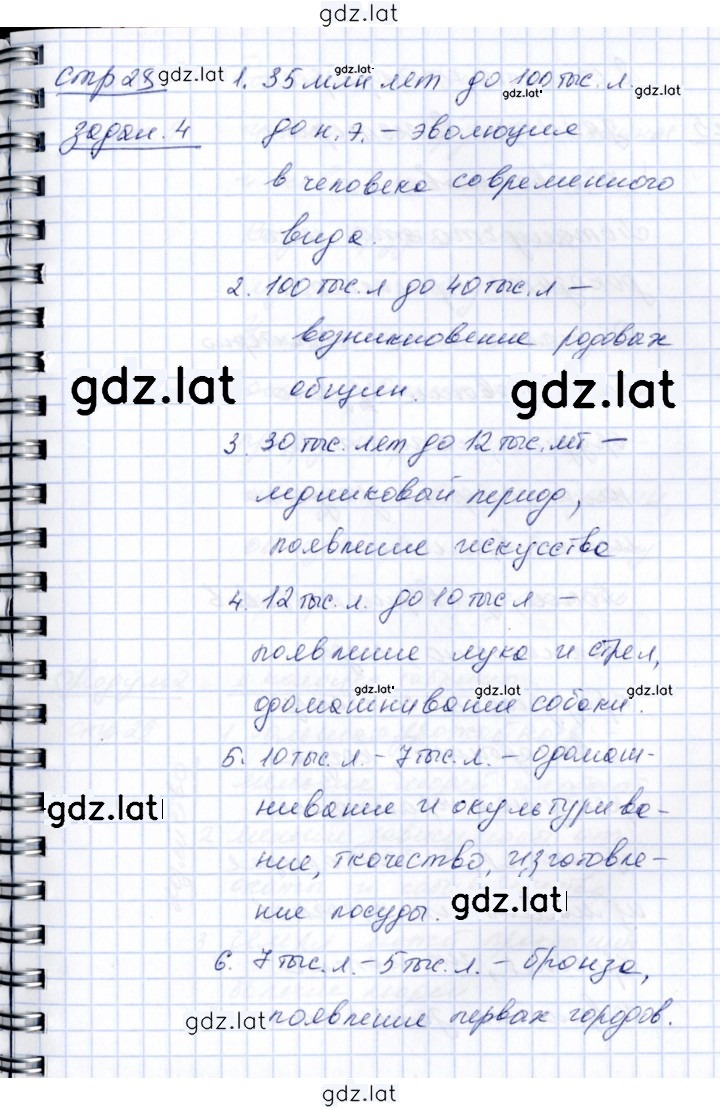 gdz.lat
стр 28 gdz.lat 1. 35 млн лет gdz.lat до 100 тыс. л. gdz.lat gdz.lat
задан. 4 до н. э. – эволюция
в человека современного
вида.
2. 100 тыс. л до 40 тыс. л –
возникновение родовых
gdz.lat общин. gdz.lat
3. 30 тыс. лет до 12 тыс. лет –
ледниковый период,
появление искусства
4. 12 тыс. л. до 10 тыс л –
появление лука и стрел,
gdz.lat gdz.lat gdz.lat
одомашнивание собаки.
5. 10 тыс. л. – 7 тыс. л. – одомаш-
gdz.lat нивание и окультурива-
ние, ткачество, изготовле-
ние посуды. gdz.lat
6. 7 тыс. л. – 5 тыс. л. – бронза,
gdz.lat появление первых городов.
gdz.lat